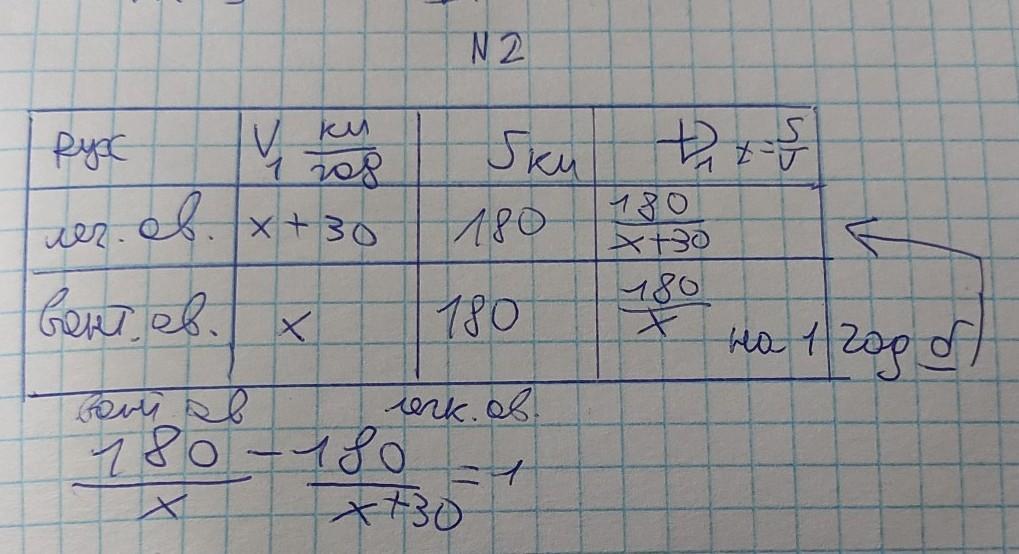 N2
Рух V₁ км/год S км t₁ t = S/V
лег. ав. x + 30 180 180/(x+30)
вант. ав. x 180 180/x на 1 год б
вант. ав легк. ав.
180/x − 180/(x+30) = 1